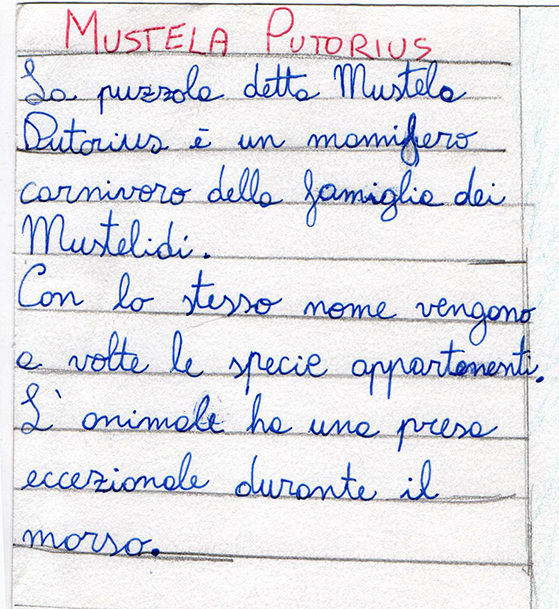 MUSTELA PUTORIUS
La puzzola detta Mustela
Putorius è un mamifero
carnivoro della famiglia dei
Mustelidi.
Con lo stesso nome vengono
a volte le specie appartenenti.
L'animale ha una presa
eccezionale durante il
morso.